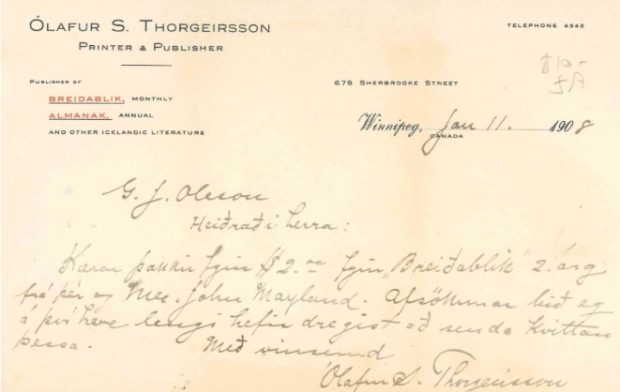 ÓLAFUR S. THORGEIRSSON
PRINTER & PUBLISHER
TELEPHONE 4342
PUBLISHER OF
BREIDABLIK, MONTHLY
ALMANAK, ANNUAL
AND OTHER ICELANDIC LITERATURE
678 SHERBROOKE STREET
$10-
Winnipeg, Jan 11. 1908
CANADA
G. J. Oleson
Heiðraði herra:
Kærar þakkir fyrir $2.00 fyrir „Breiðablik" 2. árg
frá þér og Mr. John Mayland. Afsökunar bið eg
á því hve lengi hefir dregist að senda kvittan
þessa.
Með vinsemd
Ólafur S. Thorgeirsson